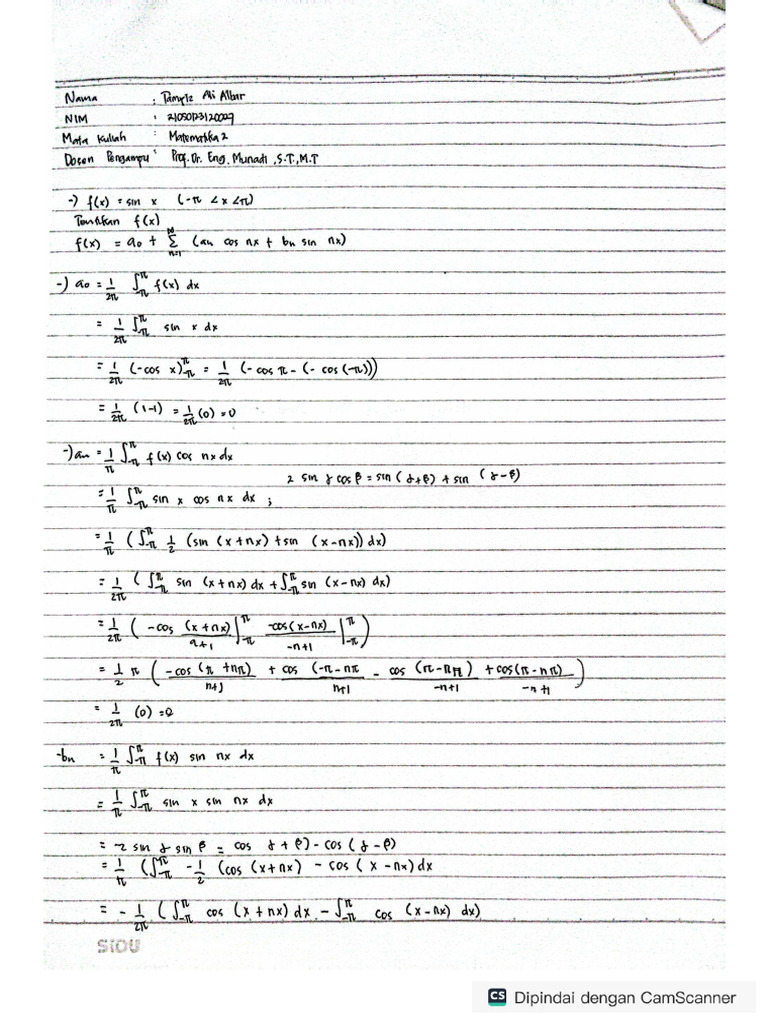 Nama :
NIM :
Mata Kuliah : Matematika 2
Dosen Pengampu : Prof. Dr. Eng. Munadi, S.T, M.T
-) f(x) = sin x (-π < x < π)
Tentukan f(x)
f(x) = a₀ + ∑ₙ₌₁^∞ (an cos nx + bn sin nx)
-) a₀ = 1/2π ∫_-π^π f(x) dx
= 1/2π ∫_-π^π sin x dx
= 1/2π (-cos x)_-π^π = 1/2π (- cos π - (- cos (-π)))
= 1/2π (1-1) = 1/2π (0) = 0
-) an = 1/π ∫_-π^π f(x) cos nx dx
2 sin α cos β = sin (α+β) + sin (α-β)
= 1/π ∫_-π^π sin x cos nx dx ;
= 1/π (∫_-π^π 1/2 (sin (x+nx) + sin (x-nx)) dx)
= 1/2π (∫_-π^π sin (x+nx) dx + ∫_-π^π sin (x-nx) dx)
= 1/2π ( -cos (x+nx)/n+1 |_-π^π -cos(x-nx)/-n+1 |_-π^π )
= 1/2 π ( -cos (π +nπ)/n+1 + cos (-π-nπ/n+1 - cos (π-nπ)/-n+1 + cos(π-nπ)/-n+1 )
= 1/2π (0) = 0
-bn = 1/π ∫_-π^π f(x) sin nx dx
= 1/π ∫_-π^π sin x sin nx dx
= -2 sin α sin β = cos α + β) - cos (α-β)
= 1/π (∫_-π^π -1/2 (cos (x+nx) - cos (x-nx) dx
= - 1/2π (∫_-π^π cos (x+nx) dx - ∫_-π^π cos (x-nx) dx)
SiDU
CS Dipindai dengan CamScanner